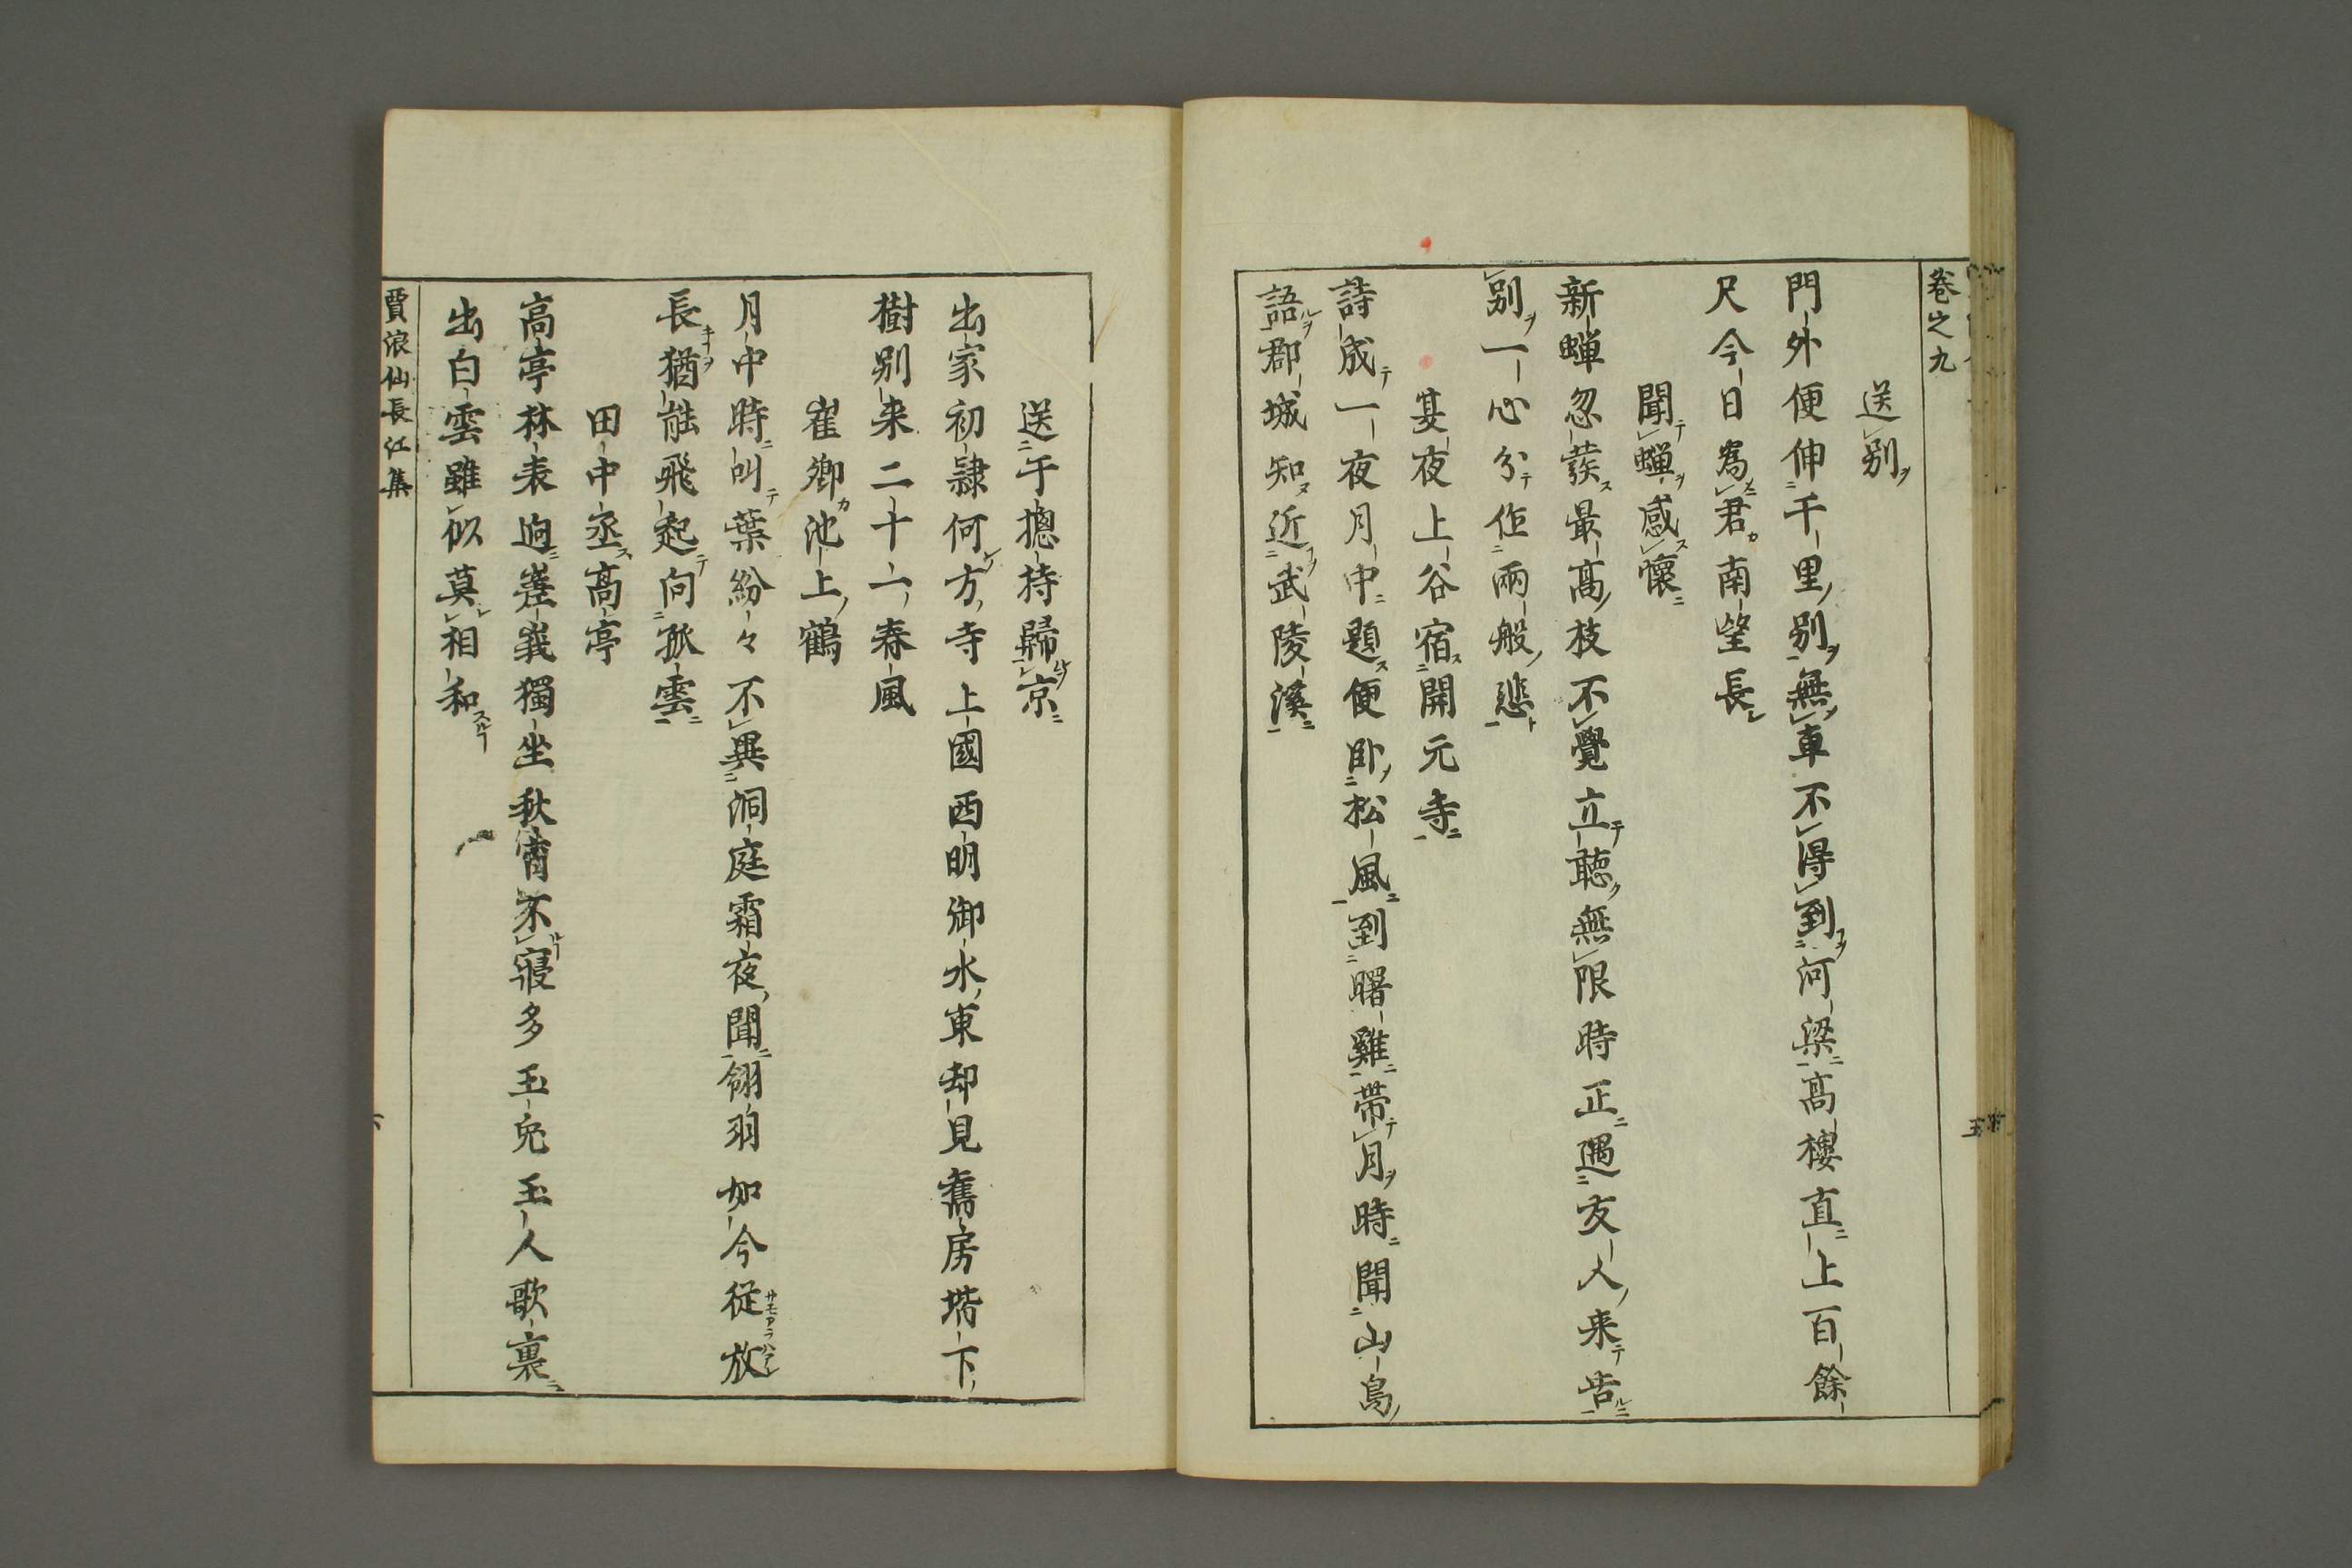 卷之九
送別
門外便伸千里別無車不得到河梁高樓直上百餘
尺今日為君南望長
聞蟬感懷
新蟬忽發最高枝不覺立聽無限時正遇友人来告
別一心分作兩般悲
夏夜上谷宿開元寺
詩成一夜月中題便卧松風到曙雞帶月時聞山鳥
語郡城知近武陵溪
送于摠持歸京
出家初隷何方寺上國西明御水東却見舊房堦下
樹別来二十一春風
崔卿池上鶴
月中時叫葉紛々不異洞庭霜夜聞翎羽如今從放
長猶能飛起向孤雲
田中丞高亭
高亭林表迥嵳峩獨坐秋宵不寢多玉兎玉人歌裏
出白雲雖似莫相和
賈浪仙長江集